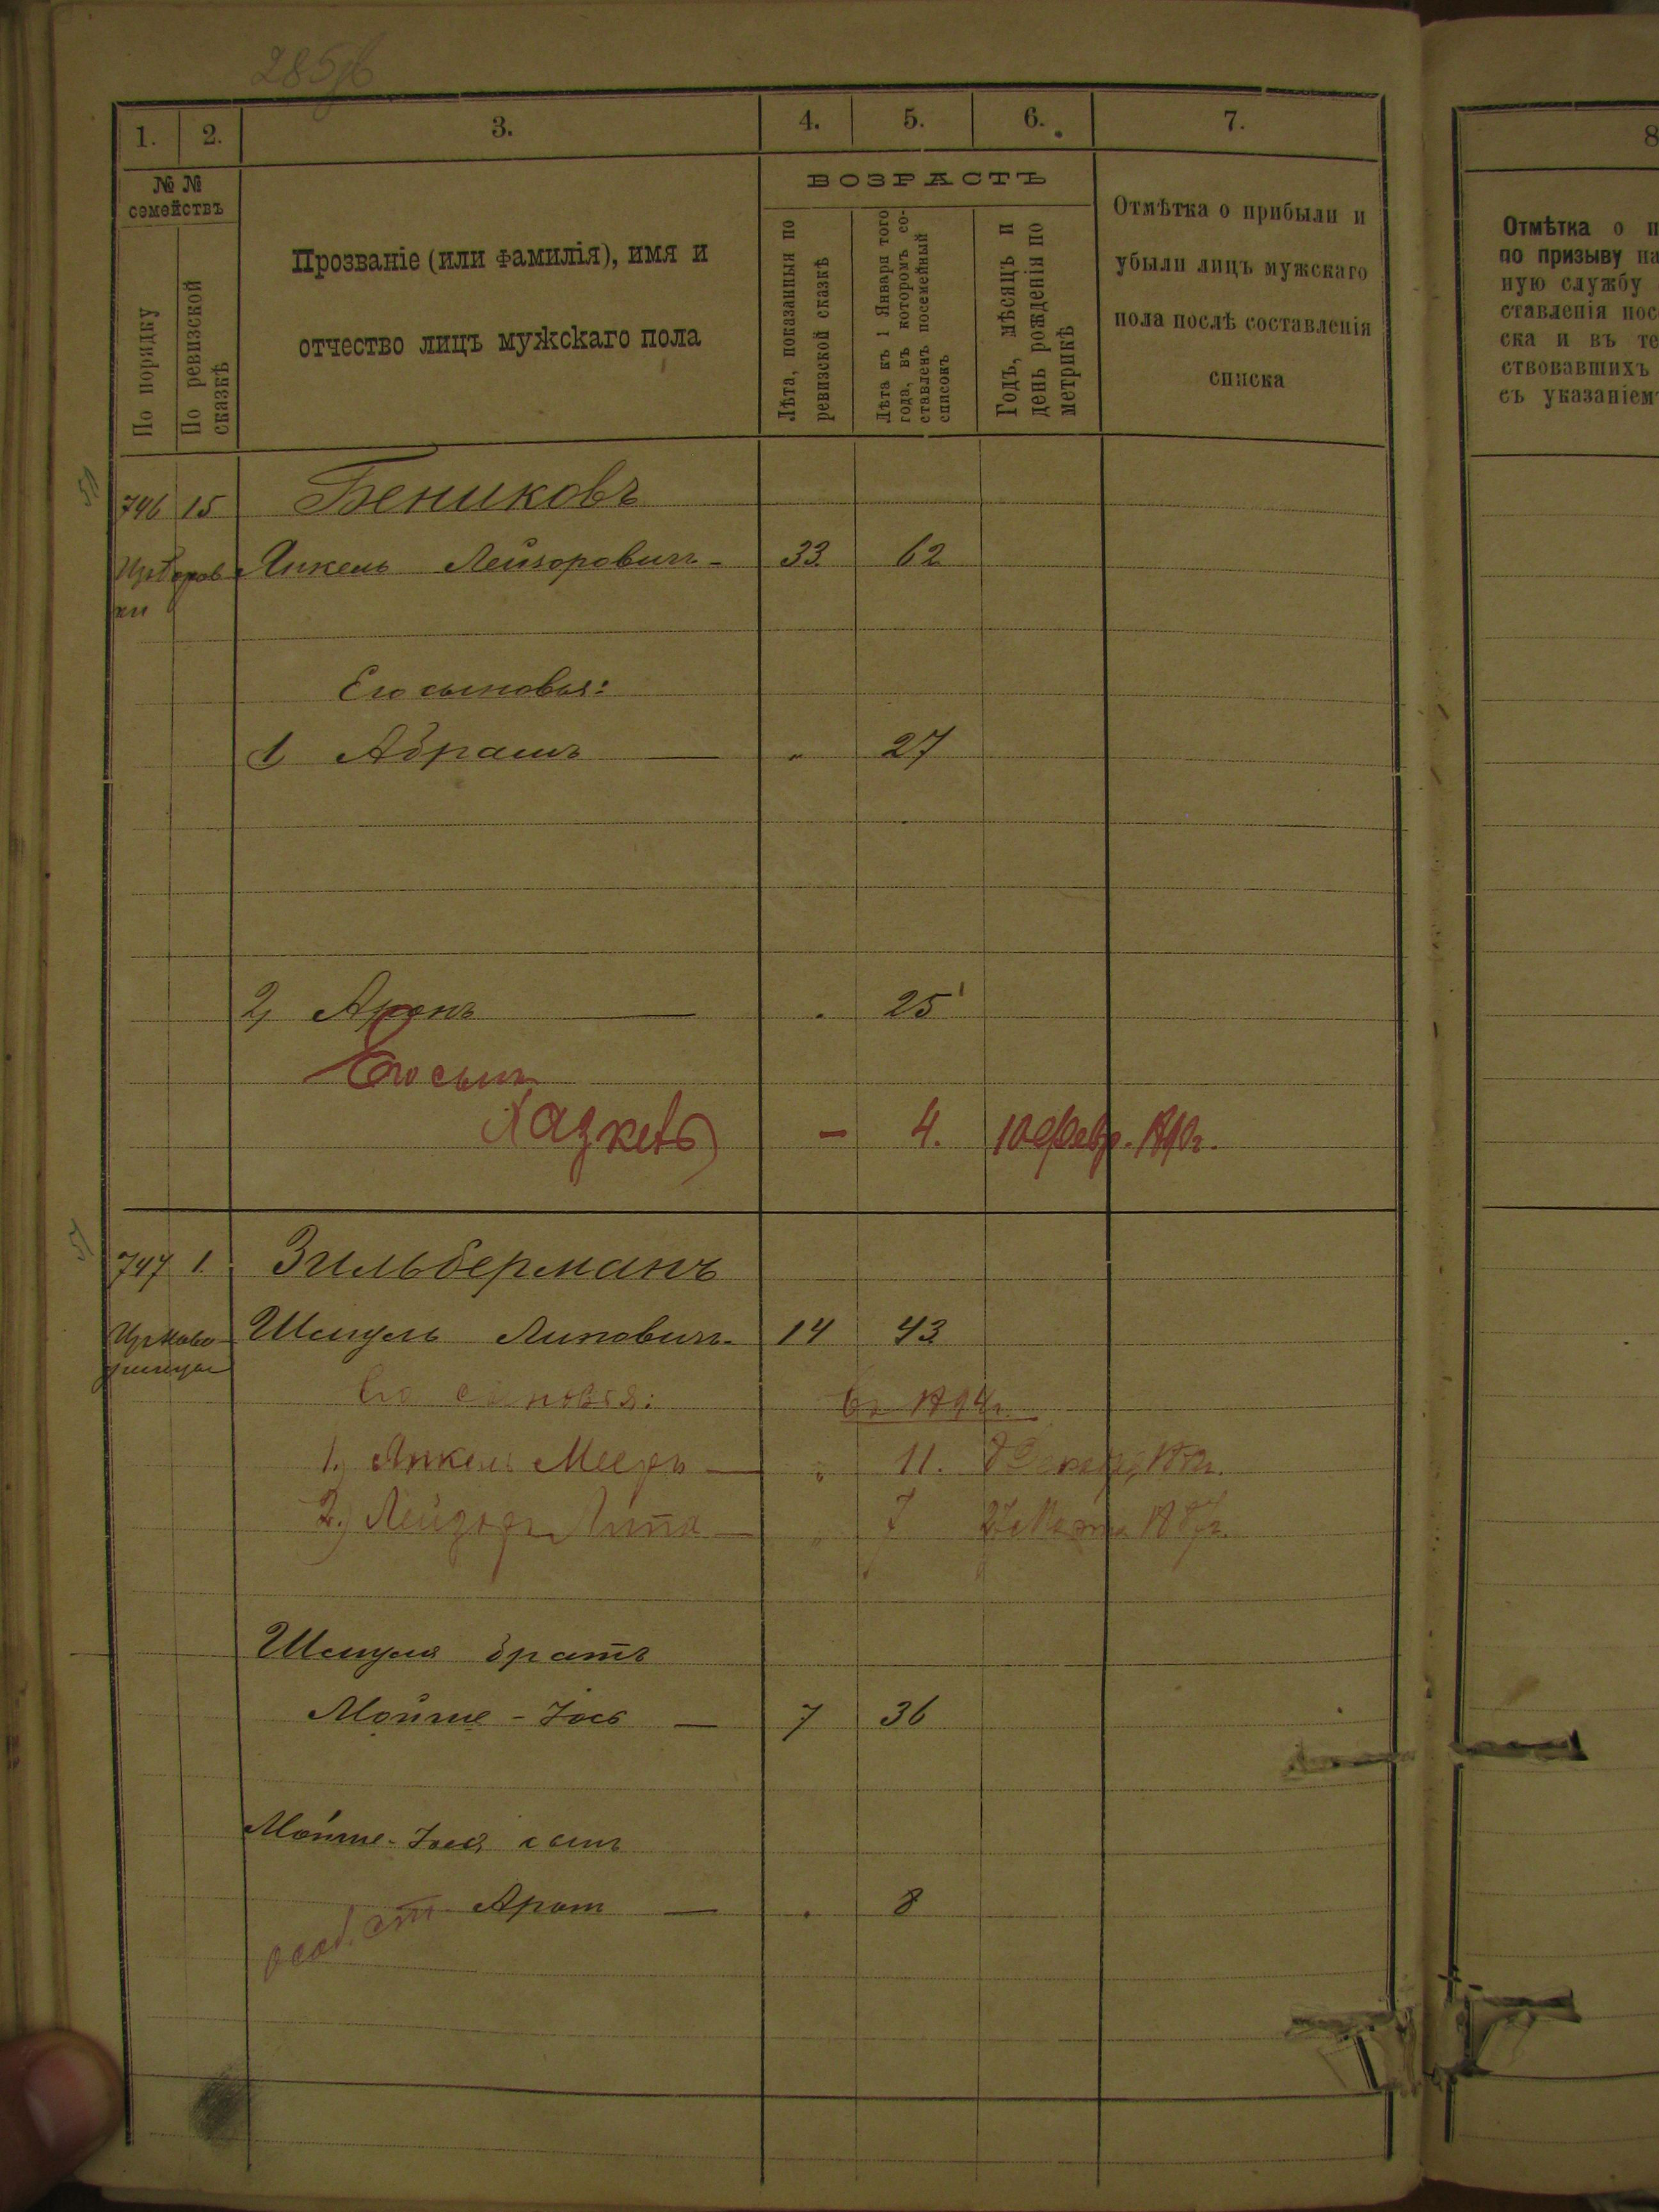 285об
1. 2. 3. 4. 5. 6. 7.
№ №
семействъ
По порядку
По ревизской сказкѣ
Прозваніе (или фамилія), имя и
отчество лицъ мужскаго пола
ВОЗРАСТЪ
Лѣта, показанныя по
ревизской сказкѣ
Лѣта къ 1 Января того
года, въ которомъ со-
ставленъ посемейный
списокъ
Годъ, мѣсяцъ и
день рожденія по
метрикѣ
Отмѣтка о прибыли и
убыли лицъ мужскаго
пола послѣ составленія
списка
746 15 Бениковъ
Янкель Лейзоровичъ - 33 62
Его сыновья:
1, Абрамъ — „ 27
2, Аронъ — „ 25
Его сынъ
Хацкель — 4. 10 Февр. 1890г.
747 1. Зильберманъ
Шмуль Липовичъ - 14 43
Его сыновья: Въ 1894г.
1.) Янкель Мееръ — „ 11.
2.) Лейзоръ Липа — „ 7 27 Марта 1887г.
Шмуля братъ
Мойше - Іось — 7 36
Мойше-Іося сынъ
Аронъ — „ 8
8
Отмѣтка о п
по призыву на
ную службу
ставленія пос
ска и въ те
ствовавшихъ
съ указаніем